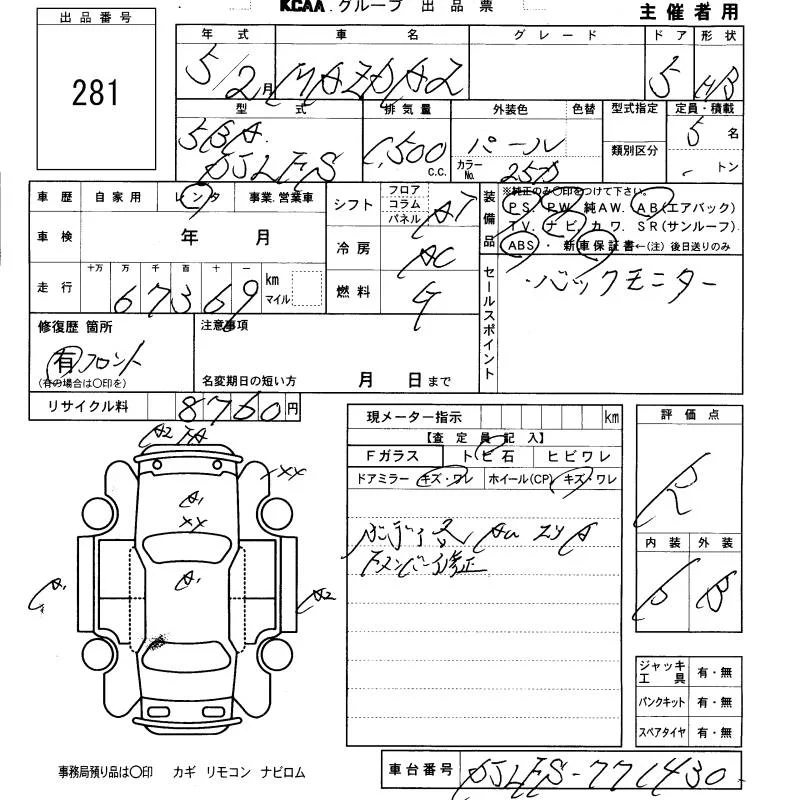 KCAA.グループ 出品票
主催者用
出品番号
281
年式 車名 グレード ドア 形状
5/2月 MAZDA2 5 HB
型式 排気量 外装色 色替 型式指定 定員・積載
5BA. DJLFS 1,500 C.C. パール 類別区分 5名
カラーNo. 25D トン
車歴 自家用 レンタ 事業.営業車
車検 年 月
走行 十万 万 千 百 十 一 km マイル
67369
シフト フロア コラム パネル AT
冷房 AC
燃料 G
装備品 ※純正のみ○印をつけて下さい。
PS. PW. 純AW. AB(エアバック)
TV. ナビ. カワ. SR(サンルーフ)
ABS ・ 新車保証書←(注) 後日送りのみ
セールスポイント
・バックモニター
修復歴 箇所
有 フロント
(有の場合は○印を)
注意事項
名変期日の短い方 月 日まで
リサイクル料 8760円
現メーター指示 km
【査定員記入】
Fガラス トビ石 ヒビワレ
ドアミラー キズ・ワレ ホイール(CP) キズ・ワレ
Fメンバー修正
評価点
R
内装 外装
B
A2
XX
A1
XX
A1
A1
A2
ジャッキ工具 有・無
パンクキット 有・無
スペアタイヤ 有・無
事務局預り品は○印 カギ リモコン ナビロム
車台番号 DJLFS-771430